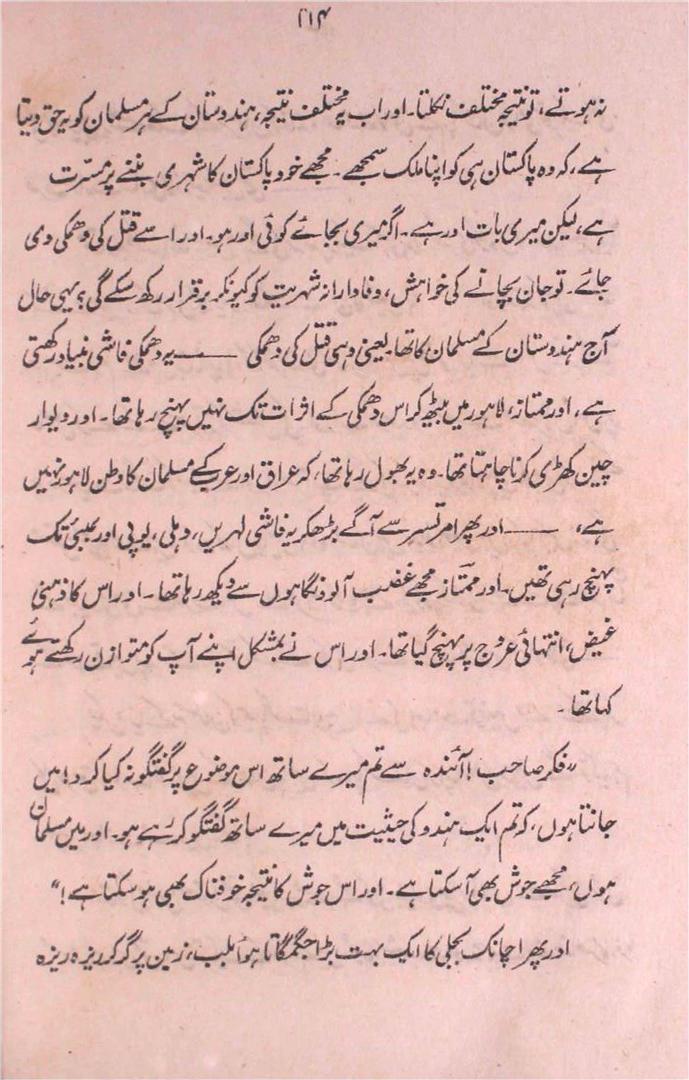 ۲۱۴
نہ ہوتے، تو نتیجہ مختلف نکلتا۔ اور اب یہ مختلف نتیجہ، ہندوستان کے ہر مسلمان کو یہ حق دیتا
ہے، کہ وہ پاکستان ہی کو اپنا ملک سمجھے۔ مجھے خود پاکستان کا شہری بننے پر مسرّت
ہے، لیکن میری بات اور ہے۔ اگر میری بجائے کوئی اور ہو۔ اور اسے قتل کی دھمکی دی
جائے۔ تو جان بچانے کی خواہش، وفادارانہ شہریت کو کیونکر برقرار رکھ سکے گی؟ یہی حال
آج ہندوستان کے مسلمان کا تھا۔ یعنی وہی قتل کی دھمکی ——— یہ دھمکی فاشی بنیاد رکھتی
ہے، اور ممتاز، لاہور میں بیٹھ کر اس دھمکی کے اثرات تک نہیں پہنچ رہا تھا۔ اور دیوار
چین کھڑی کرنا چاہتا تھا۔ وہ یہ بھول رہا تھا، کہ عراق اور عرب کے مسلمان کا وطن لاہور نہیں
ہے، ——— اور پھر امرتسر سے آگے بڑھکر یہ فاشی لہریں، دہلی، یوپی اور بمبئی تک
پہنچ رہی تھیں۔ اور ممتاز مجھے غضب آلود نگاہوں سے دیکھ رہا تھا۔ اور اس کا ذہنی
غیض، انتہائی عروج پر پہنچ گیا تھا۔ اور اس نے بمشکل اپنے آپ کو متوازن رکھتے ہوئے
کہا تھا۔
"فکر صاحب! آئندہ سے تم میرے ساتھ اس موضوع پر گفتگو نہ کیا کرو! میں
جانتا ہوں، کہ تم ایک ہندو کی حیثیت میں میرے ساتھ گفتگو کر رہے ہو۔ اور میں مسلمان
ہوں، مجھے جوش بھی آ سکتا ہے۔ اور اس جوش کا نتیجہ خوفناک بھی ہو سکتا ہے!"
اور پھر اچانک بجلی کا ایک بہت بڑا جگمگاتا ہوا بلب، زمین پر گر کر ریزہ ریزہ